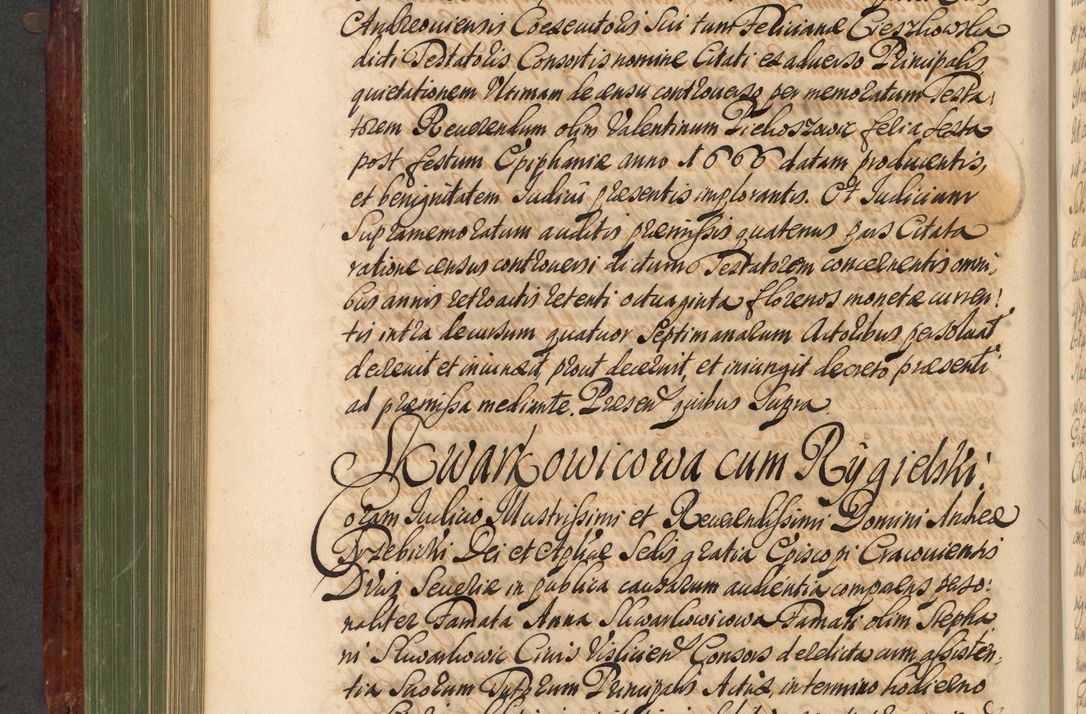 Andreoviensis Coexecutoris Sui tum Feliciana Cieszkowska
dicti Testatoris Consortis nomine Citati ex adverso Principalis
quietationem Ultimam de censu controverso per memoratum Testa:
torem Reverendum olim Valentinum feria sexta
post festum Epiphaniæ anno 1666 datam producentis,
et benignitatem Iudicii præsentis implorantis. Et Iudicium
Supramemoratum auditis præmissis quatenus pars Citata
ratione census controversi dictum Testatorem concernentis omni,
bus annis retroactis retenti octuaginta florenos monetæ curren:
tis intra decursum quatuor Septimanarum Actoribus persolvat
decrevit et iniunxit, prout decernit et iniungit decreto præsenti
ad præmissa mediante. Præsen quibus Supra
Skwarkowicowa cum Rÿgielski:
Coram Iudicio Illustrissimi et Reverendissimi Domini Andreæ
Trzebicki Dei et Aplicæ Sedis gratia Episcopi Cracoviensis
Ducis Severiæ in publica causarum audientia comparens perso:
naliter Famata Anna Skwarkowicowa Famati olim Stepha
ni Skwarkowic Civis Vislicien Consors derelicta cum assisten,
tia Suorum Tutorum Principalis Actrix, in termino hodierno